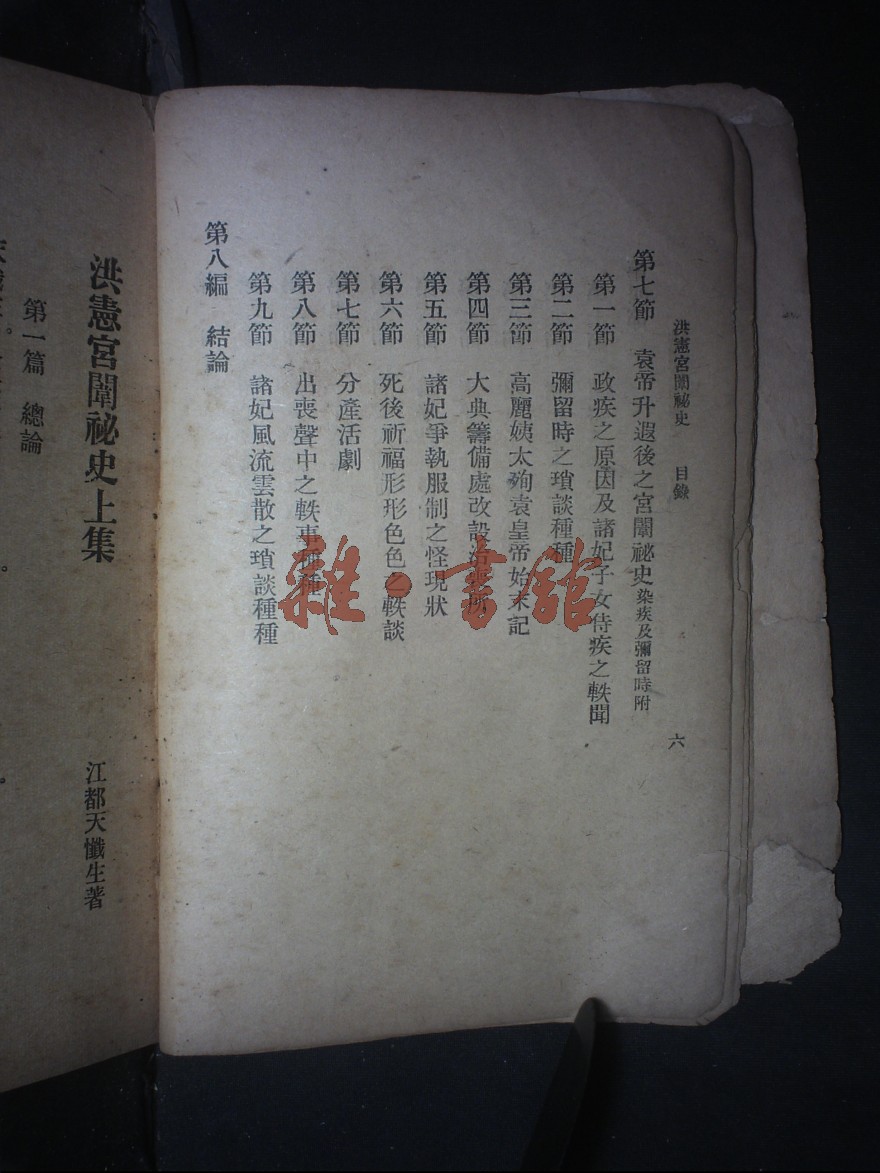 洪憲宮闈祕史 目錄 六
第七節 袁帝升遐後之宮闈祕史染疾及彌留時附
第一節 政疾之原因及諸妃子女侍疾之軼聞
第二節 彌留時之瑣談種種
第三節 高麗姨太殉袁皇帝始末記
第四節 大典籌備處改設治喪所
第五節 諸妃爭執服制之怪現狀
第六節 死後祈福形形色色之軼談
第七節 分產活劇
第八節 出喪聲中之軼事種種
第九節 諸妃風流雲散之瑣談種種
第八編 結論
洪憲宮闈祕史上集
江都天懺生著
第一篇 總論
雜·書館